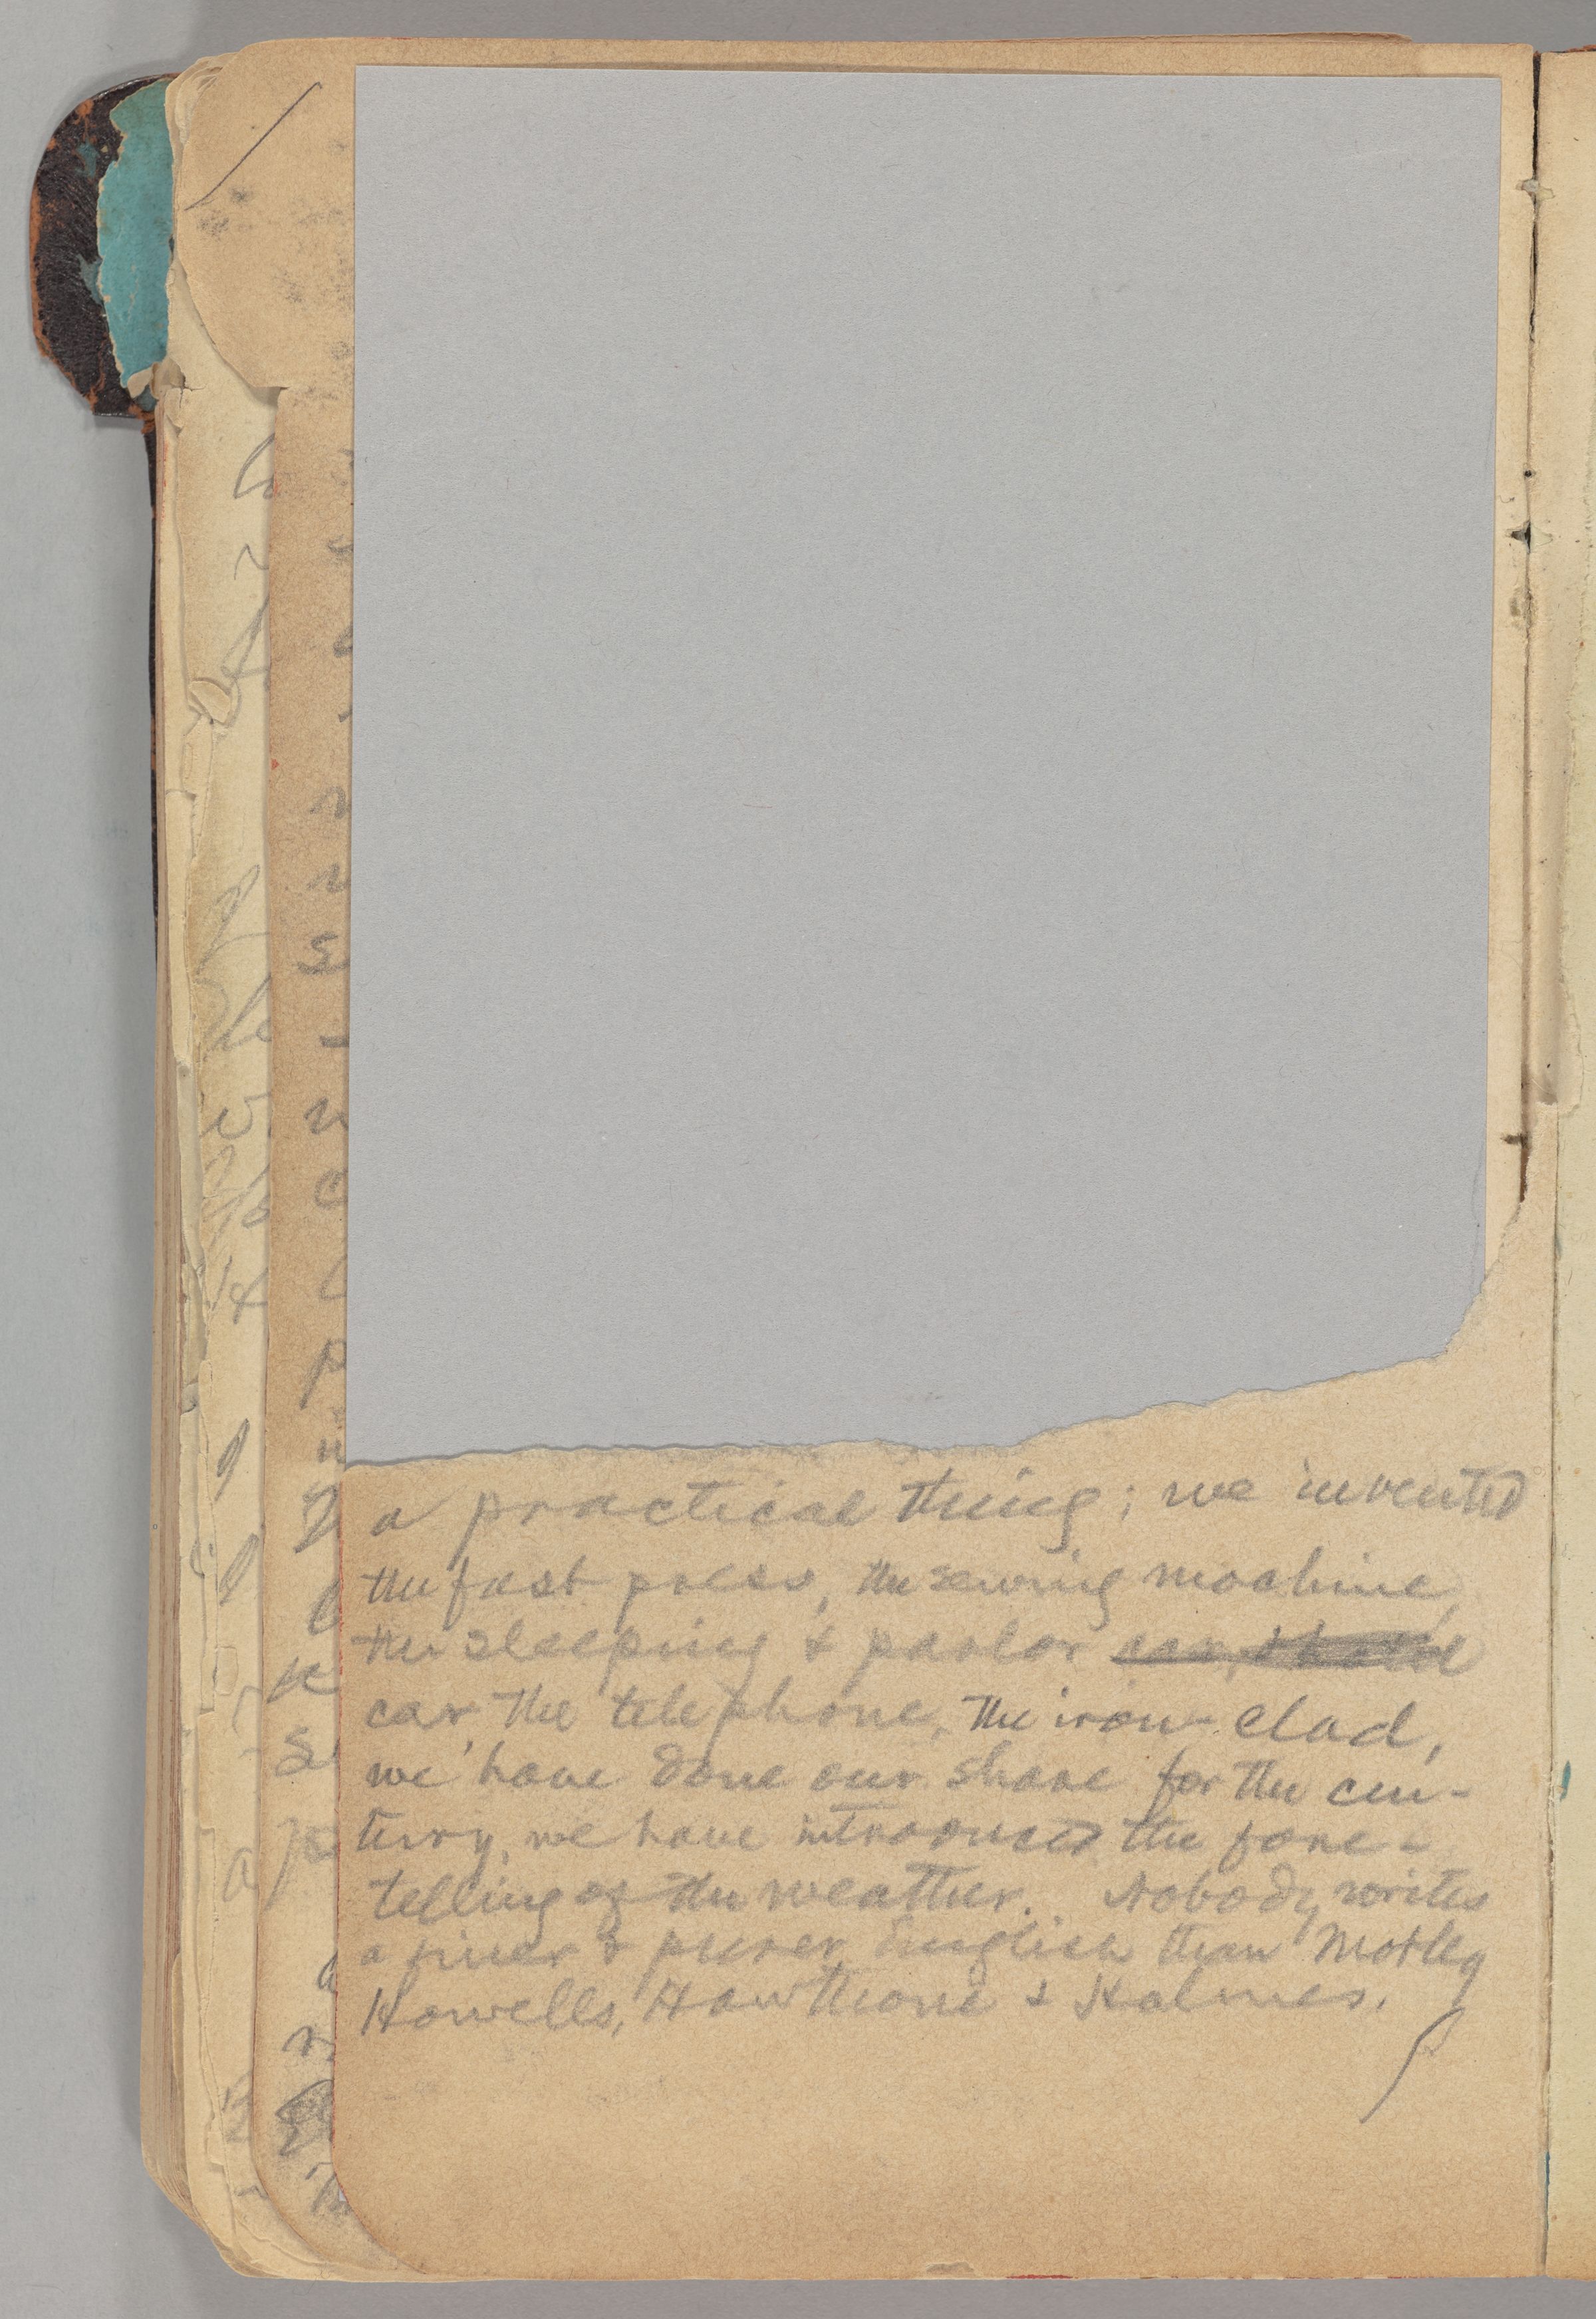 a practical thing; we invented
the fast press, the sewing machine,
the sleeping & parlor car, the
car, the telephone, the iron-clad,
we have done our share for the cen-
tury, we have introduced the fore-
telling of the weather. Nobody writes
a finer & purer English than Motley
Howells, Hawthorne & Holmes.